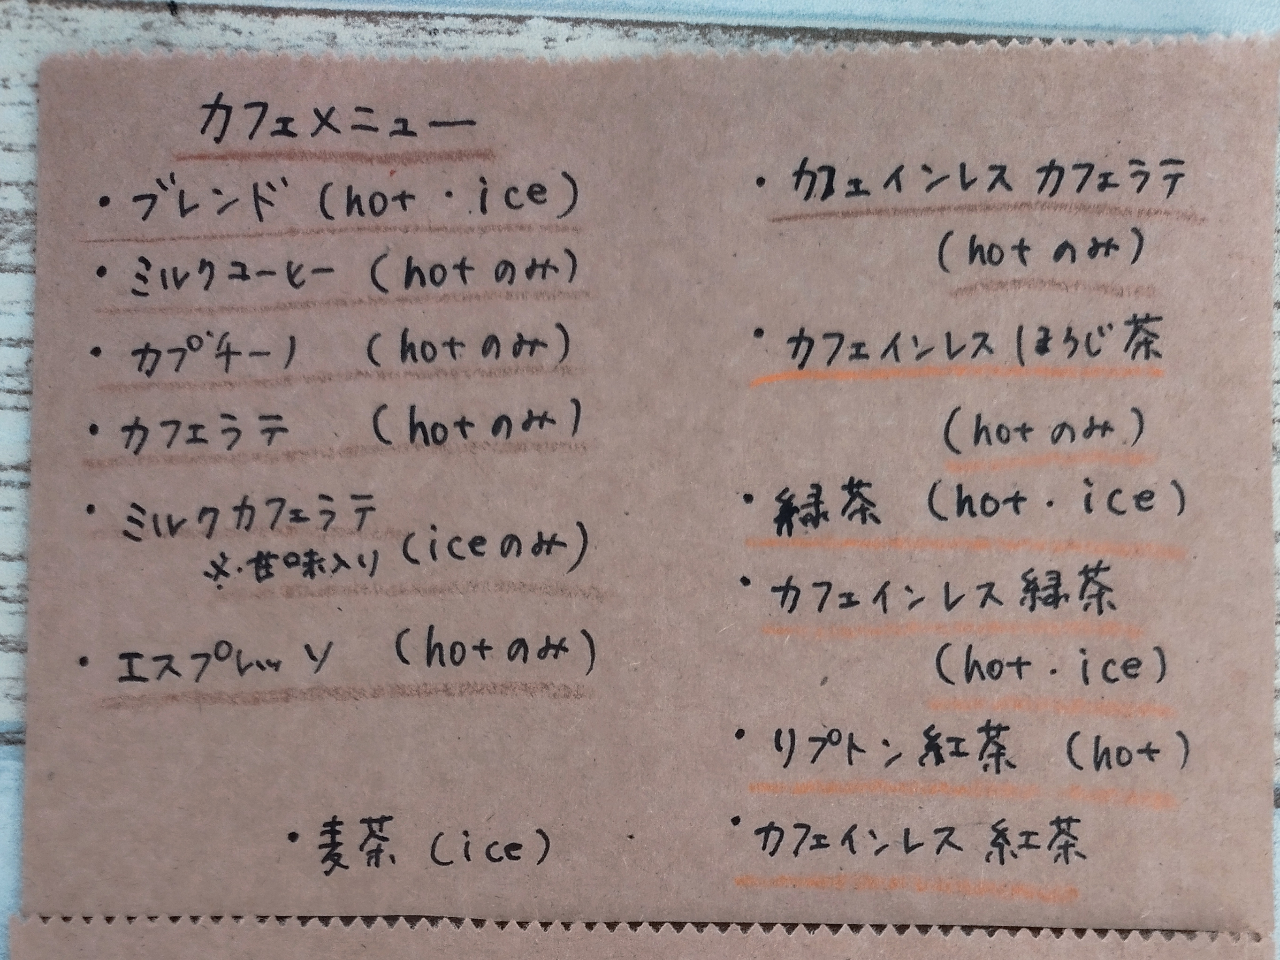 カフェメニュー
・ブレンド (hot・ice)
・ミルクコーヒー (hotのみ)
・カプチーノ (hotのみ)
・カフェラテ (hotのみ)
・ミルクカフェラテ
※・甘味入り (iceのみ)
・エスプレッソ (hotのみ)
・麦茶 (ice)
・カフェインレス カフェラテ
(hotのみ)
・カフェインレス ほうじ茶
(hotのみ)
・緑茶 (hot・ice)
・カフェインレス 緑茶
(hot・ice)
・リプトン紅茶 (hot)
・カフェインレス 紅茶